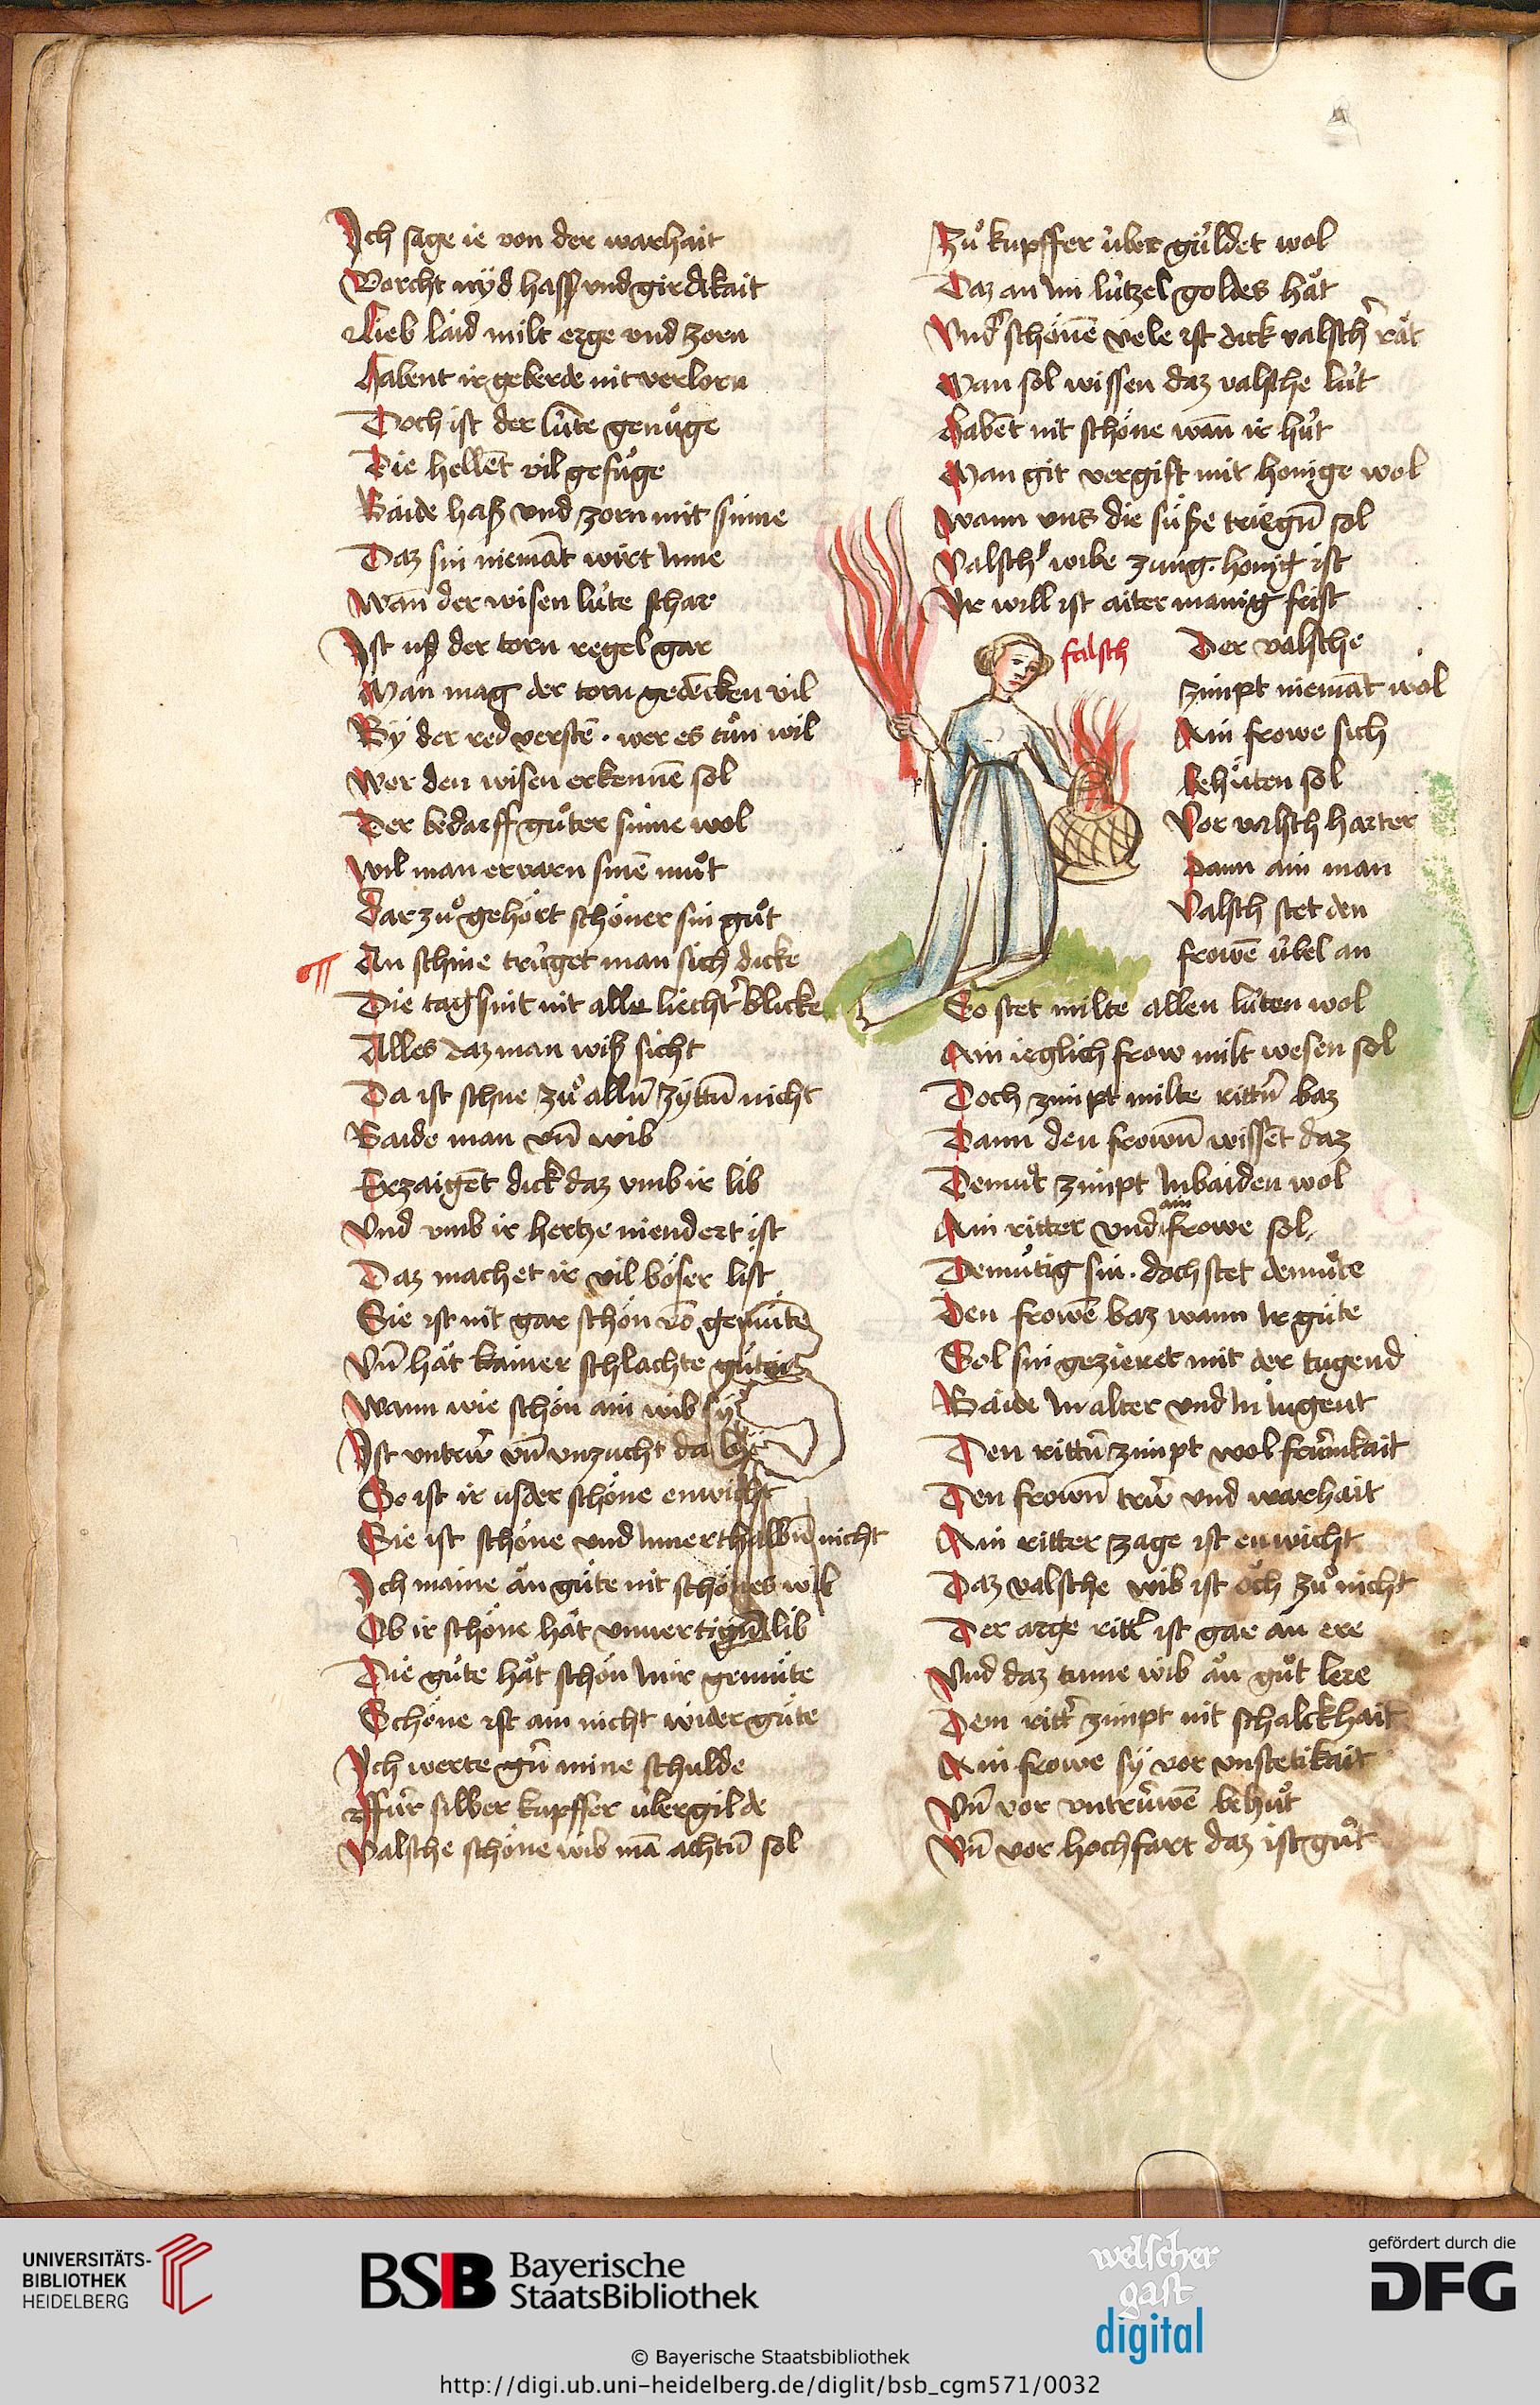 Ich sage ie von der warhait
Vorcht nÿd hass vnd girdikait
Lieb laid milt erge vnd zorn
Habent ir geberde nit verlorn
Doch ist der lu̍te genu̍ge
Die hellēt vil gefu̍ge
Baide haß vnd zorn mit sinne
Daz sin niemāt wirt Inne
Wañ der wisen lu̍te schar
Ist vß der torn regel gar
Man mag der torn gedēcken vil
Bÿ der red verstē · wer es tůn wil
Wer den wisen erkennē sol
Der bedarff gůter sinne wol
Wil man ervarn sinē můt
Dar zů gehört schöner sin gůt
An schine tru̍get man sich dicke
Die tag sint nit alle liechtˀ blicke
Alles daz man wiß sicht
Da ist schne zů allñ zÿttñ nicht
Baide man vñ wib
Erzaigēt dick daz vmb ir lib
Vnd vmb ir hertze niendert ist
Daz machet ir vil böser list
Sie ist nit gar schön vō gemu̍te
Vñ hät kainer schlachte gu̍te
Wann wie schön ain wib sÿ
Ist vntrw̍ vñ vnzucht da bÿ
So ist ir vsser schöne enwicht
Sie ist schöne vnd Innerthalbñ nicht
Ich maine ån gu̍te nit schönes wib
Ob ir schöne hät vnuertigñ lib
Die gu̍te hät schön Inir gemu̍te
Schöne ist ain nicht wider gu̍te
Ich werte gñ mine schulde
Ffu̍r silber kupffer u̍bergilde
Valsche schöne wib mā achtñ sol
Zů kupffer u̍ber gu̍ldet wol
Daz an Im lu̍tzel goldes hät
Vndˀ schönē vele ist dick valschˀ rät
Man sol wissen daz valsche lu̍t
Habēt nit schöne wañ ir hu̍t
Man git vergift mit honige wol
Wann vns die süße triegñ sol
Valschˀ wibe zung · honig ist
Ir will ist aiter manig frist
falsch
Der valsche
zimpt niemāt wol
Ain frowe sich
behu̍ten sol
Vor valsch harter
Dann ain man
Valsch stet den
frowē u̍bel an
So stet milte allen lu̍ten wol
Ain ieglich frow milt wesen sol
Doch zimpt milte rittñ baz
Dann den frowñ wissēt daz
Demůt zimpt Inbaiden wol
Ain ritter vnd ain frowe sol
Demu̍tig sin · doch stet demu̍te
Den frowē baz wann Ir gu̍te
Sol sin gezieret mit der tugend
Baide In alter vnd In Iugent
Den rittñ zimpt wol fru̍mkait
Den frowñ trw̍ vnd warhait
Ain ritter zage ist enwicht
Daz valsche wib ist öch zů nicht
Der arge rittˀ ist gar an ere
Vnd daz tume wib ån gůt lere
Dem rittˀ zimpt nit schalckhait
Ain frowe sÿ vor vnstetikait
Vñ vor vntru̍wē behůt
Vñ vor hochfart daz ist gůt
UNIVERSITÄTS-
BIBLIOTHEK
HEIDELBERG
BSB Bayerische
StaatsBibliothek
welscher
gast
digital
gefördert durch die
DFG
© Bayerische Staatsbibliothek
http://digi.ub.uni-heidelberg.de/diglit/bsb_cgm571/0032